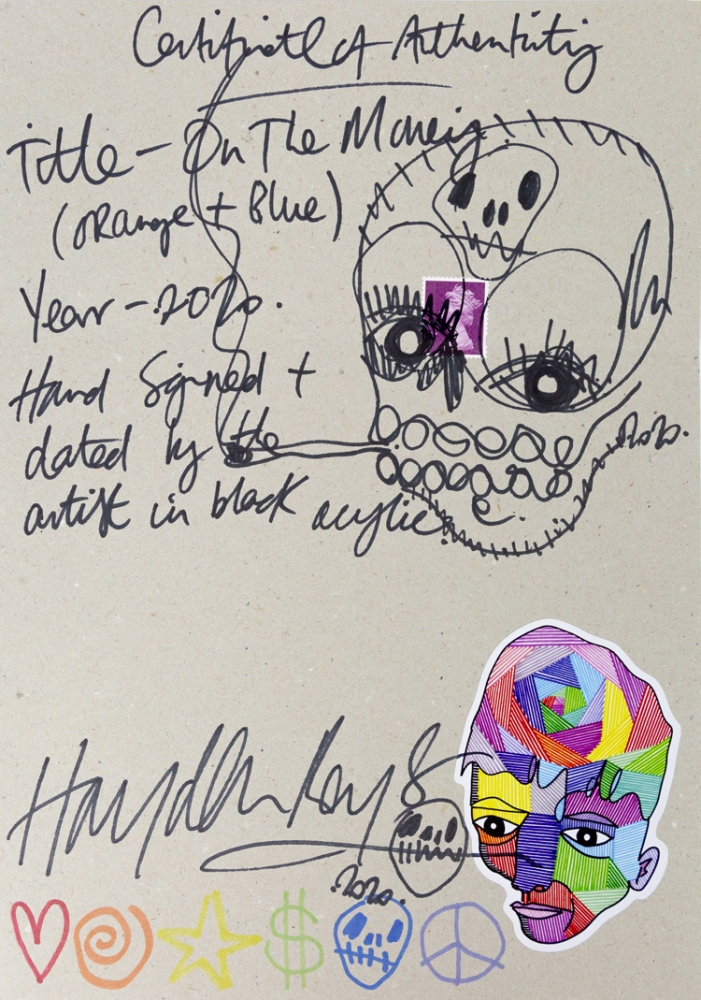 Certificate of Authenticity
Title - On The Money.
(orange + Blue)
Year - 2020.
Hand Signed +
dated by the
artist in black acrylic.
2020.
Hayden Kays
2020.